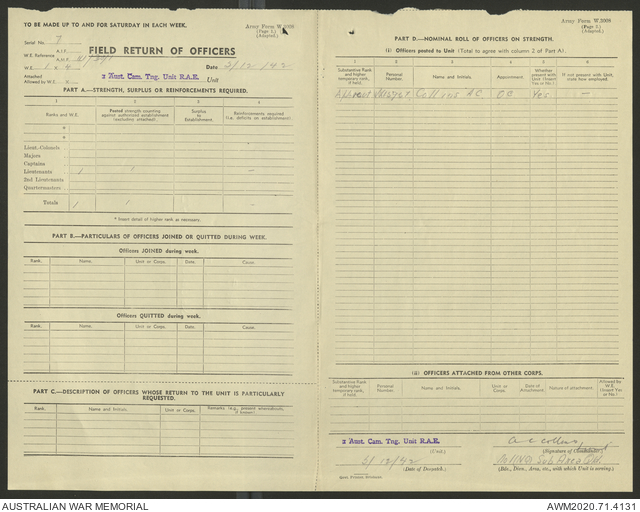 TO BE MADE UP TO AND FOR SATURDAY IN EACH WEEK.
Army Form W.3008
(Page 1.)
(Adapted.)
Serial No. 7
A.I.F.
W.E. Reference A.M.F.
W.E.
FIELD RETURN OF OFFICERS
Date 5/12/42
Attached
Allowed by W.E. x
2 Aust. Cam. Tng. Unit R.A.E. Unit
PART A.—STRENGTH, SURPLUS OR REINFORCEMENTS REQUIRED.
1 2 3 4
Ranks and W.E.
Posted strength counting against authorized establishment (excluding attached).
Surplus to Establishment.
Reinforcements required (i.e. deficits on establishment).
*
*
Lieut.-Colonels
Majors
Captains
Lieutenants 1 1 —
2nd Lieutenants
Quartermasters
Totals 1 1 —
* Insert detail of higher rank as necessary.
PART B.—PARTICULARS OF OFFICERS JOINED OR QUITTED DURING WEEK.
Officers JOINED during week.
Rank. Name. Unit or Corps. Date. Cause.
Officers QUITTED during week.
Rank. Name. Unit or Corps. Date. Cause.
PART C.—DESCRIPTION OF OFFICERS WHOSE RETURN TO THE UNIT IS PARTICULARLY REQUESTED.
Rank. Name and Initials. Unit or Corps. Remarks (e.g., present whereabouts, if known).
Army Form W.3008
(Page 2.)
(Adapted.)
PART D.—NOMINAL ROLL OF OFFICERS ON STRENGTH.
(i) Officers posted to Unit (Total to agree with column 2 of Part A).
1 2 3 4 5 6
Substantive Rank and higher temporary, if held.
Personal Number.
Name and Initials.
Appointment.
Whether present with Unit (Insert Yes or No.)
If not present with Unit, state how employed.
Collins A.C. OC Yes —
(ii) OFFICERS ATTACHED FROM OTHER CORPS.
Substantive Rank and higher temporary, if held.
Personal Number.
Name and Initials.
Unit or Corps.
Date of Attachment.
Nature of attachment.
Allowed by W.E. (Insert Yes or No.)
2 Aust. Cam. Tng. Unit R.A.E.
(Unit.)
A C Collins
(Signature of
5/12/42
(Date of Despatch.)
Sub Area
(Bde., Divn., Area, etc., with which Unit is serving.)
AUSTRALIAN WAR MEMORIAL
AWM2020.71.4131